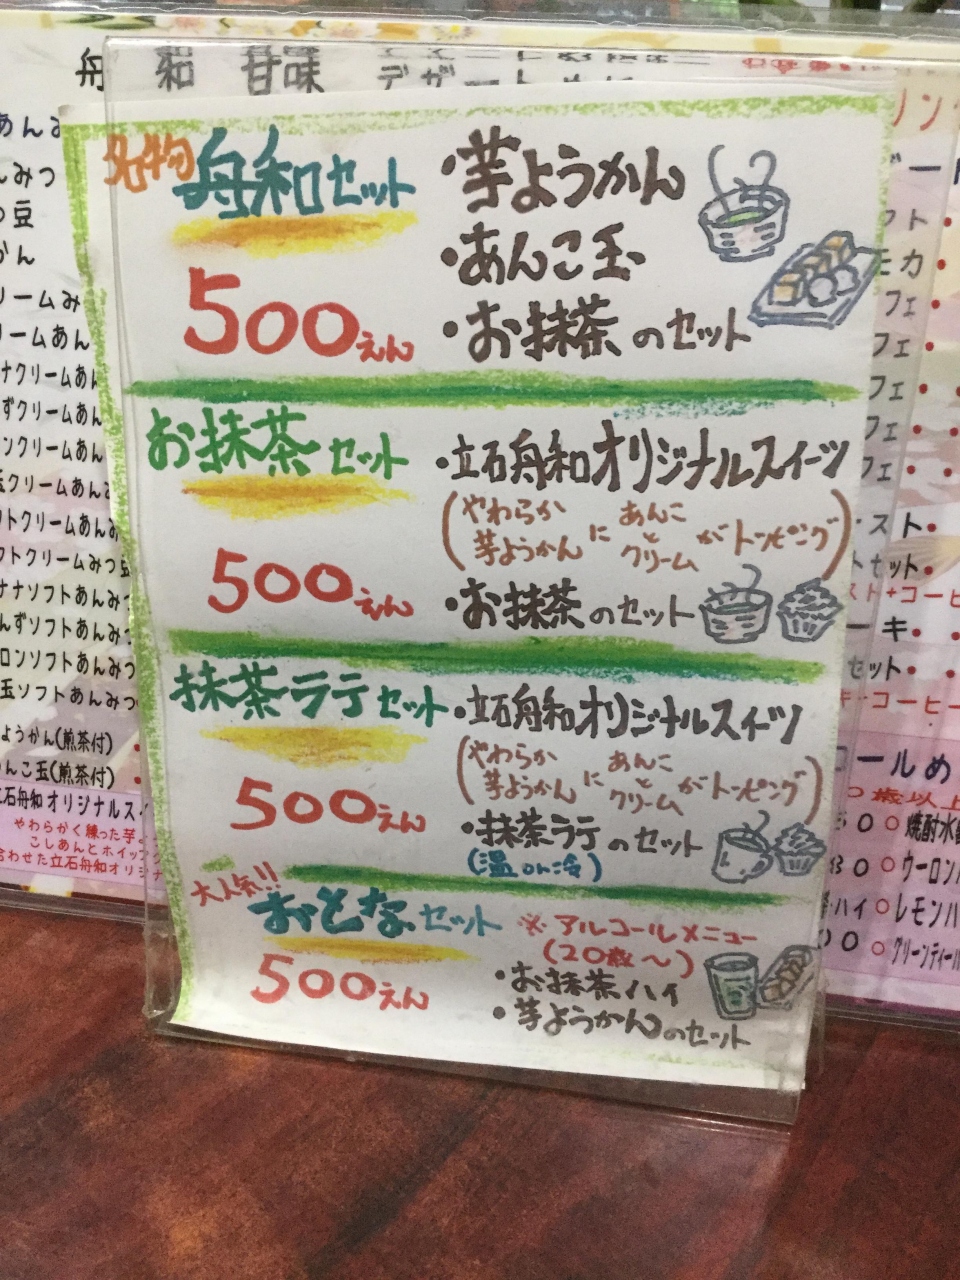 舟和 甘味 デザート
名物 舟和セット
500えん
・芋ようかん
・あんこ玉
・お抹茶のセット
お抹茶セット
500えん
・立石舟和オリジナルスイーツ
(やわらか芋ようかんにあんことクリームがトッピング)
・お抹茶のセット
抹茶ラテセット
500えん
・立石舟和オリジナルスイーツ
(やわらか芋ようかんにあんことクリームがトッピング)
・抹茶ラテのセット
(温or冷)
大人気!!
おとなセット
500えん
※アルコールメニュー
(20歳〜)
・お抹茶ハイ
・芋ようかんのセット
みつ
豆
かん
リームみ
クリームあん
ナクリームあん
ずクリームあん
ンクリームあん
玉クリームあん
フトクリームあん
フトクリームみつ豆
ナナソフトあんみ
んずソフトあんみ
ロンソフトあんみつ
玉ソフトあんみつ
ようかん(煎茶付)
んこ玉(煎茶付)
立石舟和オリジナルス
やわらかく練った芋
こしあんとホイップ
合わせた立石舟和オリジナ
フト
モカ
フェ
フェ
フェ
フェ
フェ
スト
トセット
スト+コーヒ
ーキ
セット
キ・コーヒー
コールめ
歳以上
焼酎水
ウーロン
ハイ
レモンハ
グリーンティー